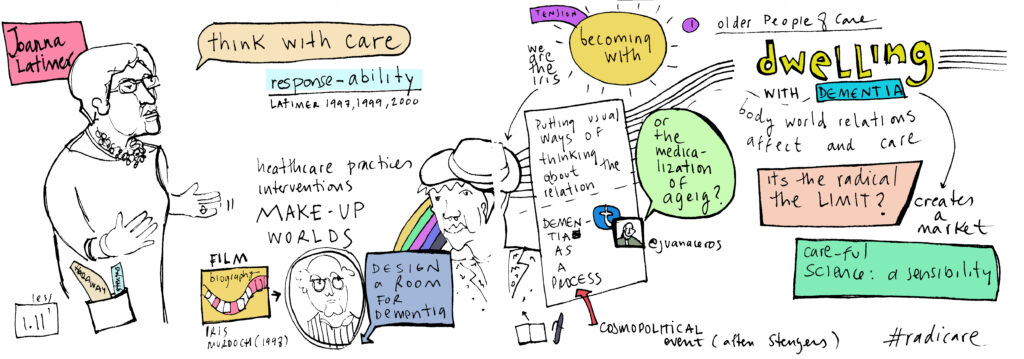 Joanna
Latimer
think with care
response-ability
LATIMER 1997, 1999, 2000
healthcare practices
interventions
MAKE-UP
WORLDS
FILM
biography
IRIS
MURDOCH (1998)
DESIGN
a ROOM
FOR
Dementia
HARAWAY
1.11'
TENSION
becoming
with
we
are
the
iris
putting usual
ways of
thinking
about the
relation
DEMEN-
TIA
AS
A
PROCESS
or
the
medica-
lization
OF
ageig?
@juanaceros
COSMOPOLITICAL
event (after Stengers)
1
older People & Care
dwelling
WITH DEMENTIA
body world relations
affect and care
its the radical
the LIMIT?
creates
a
market
care-ful
science: a sensibility
#radicare